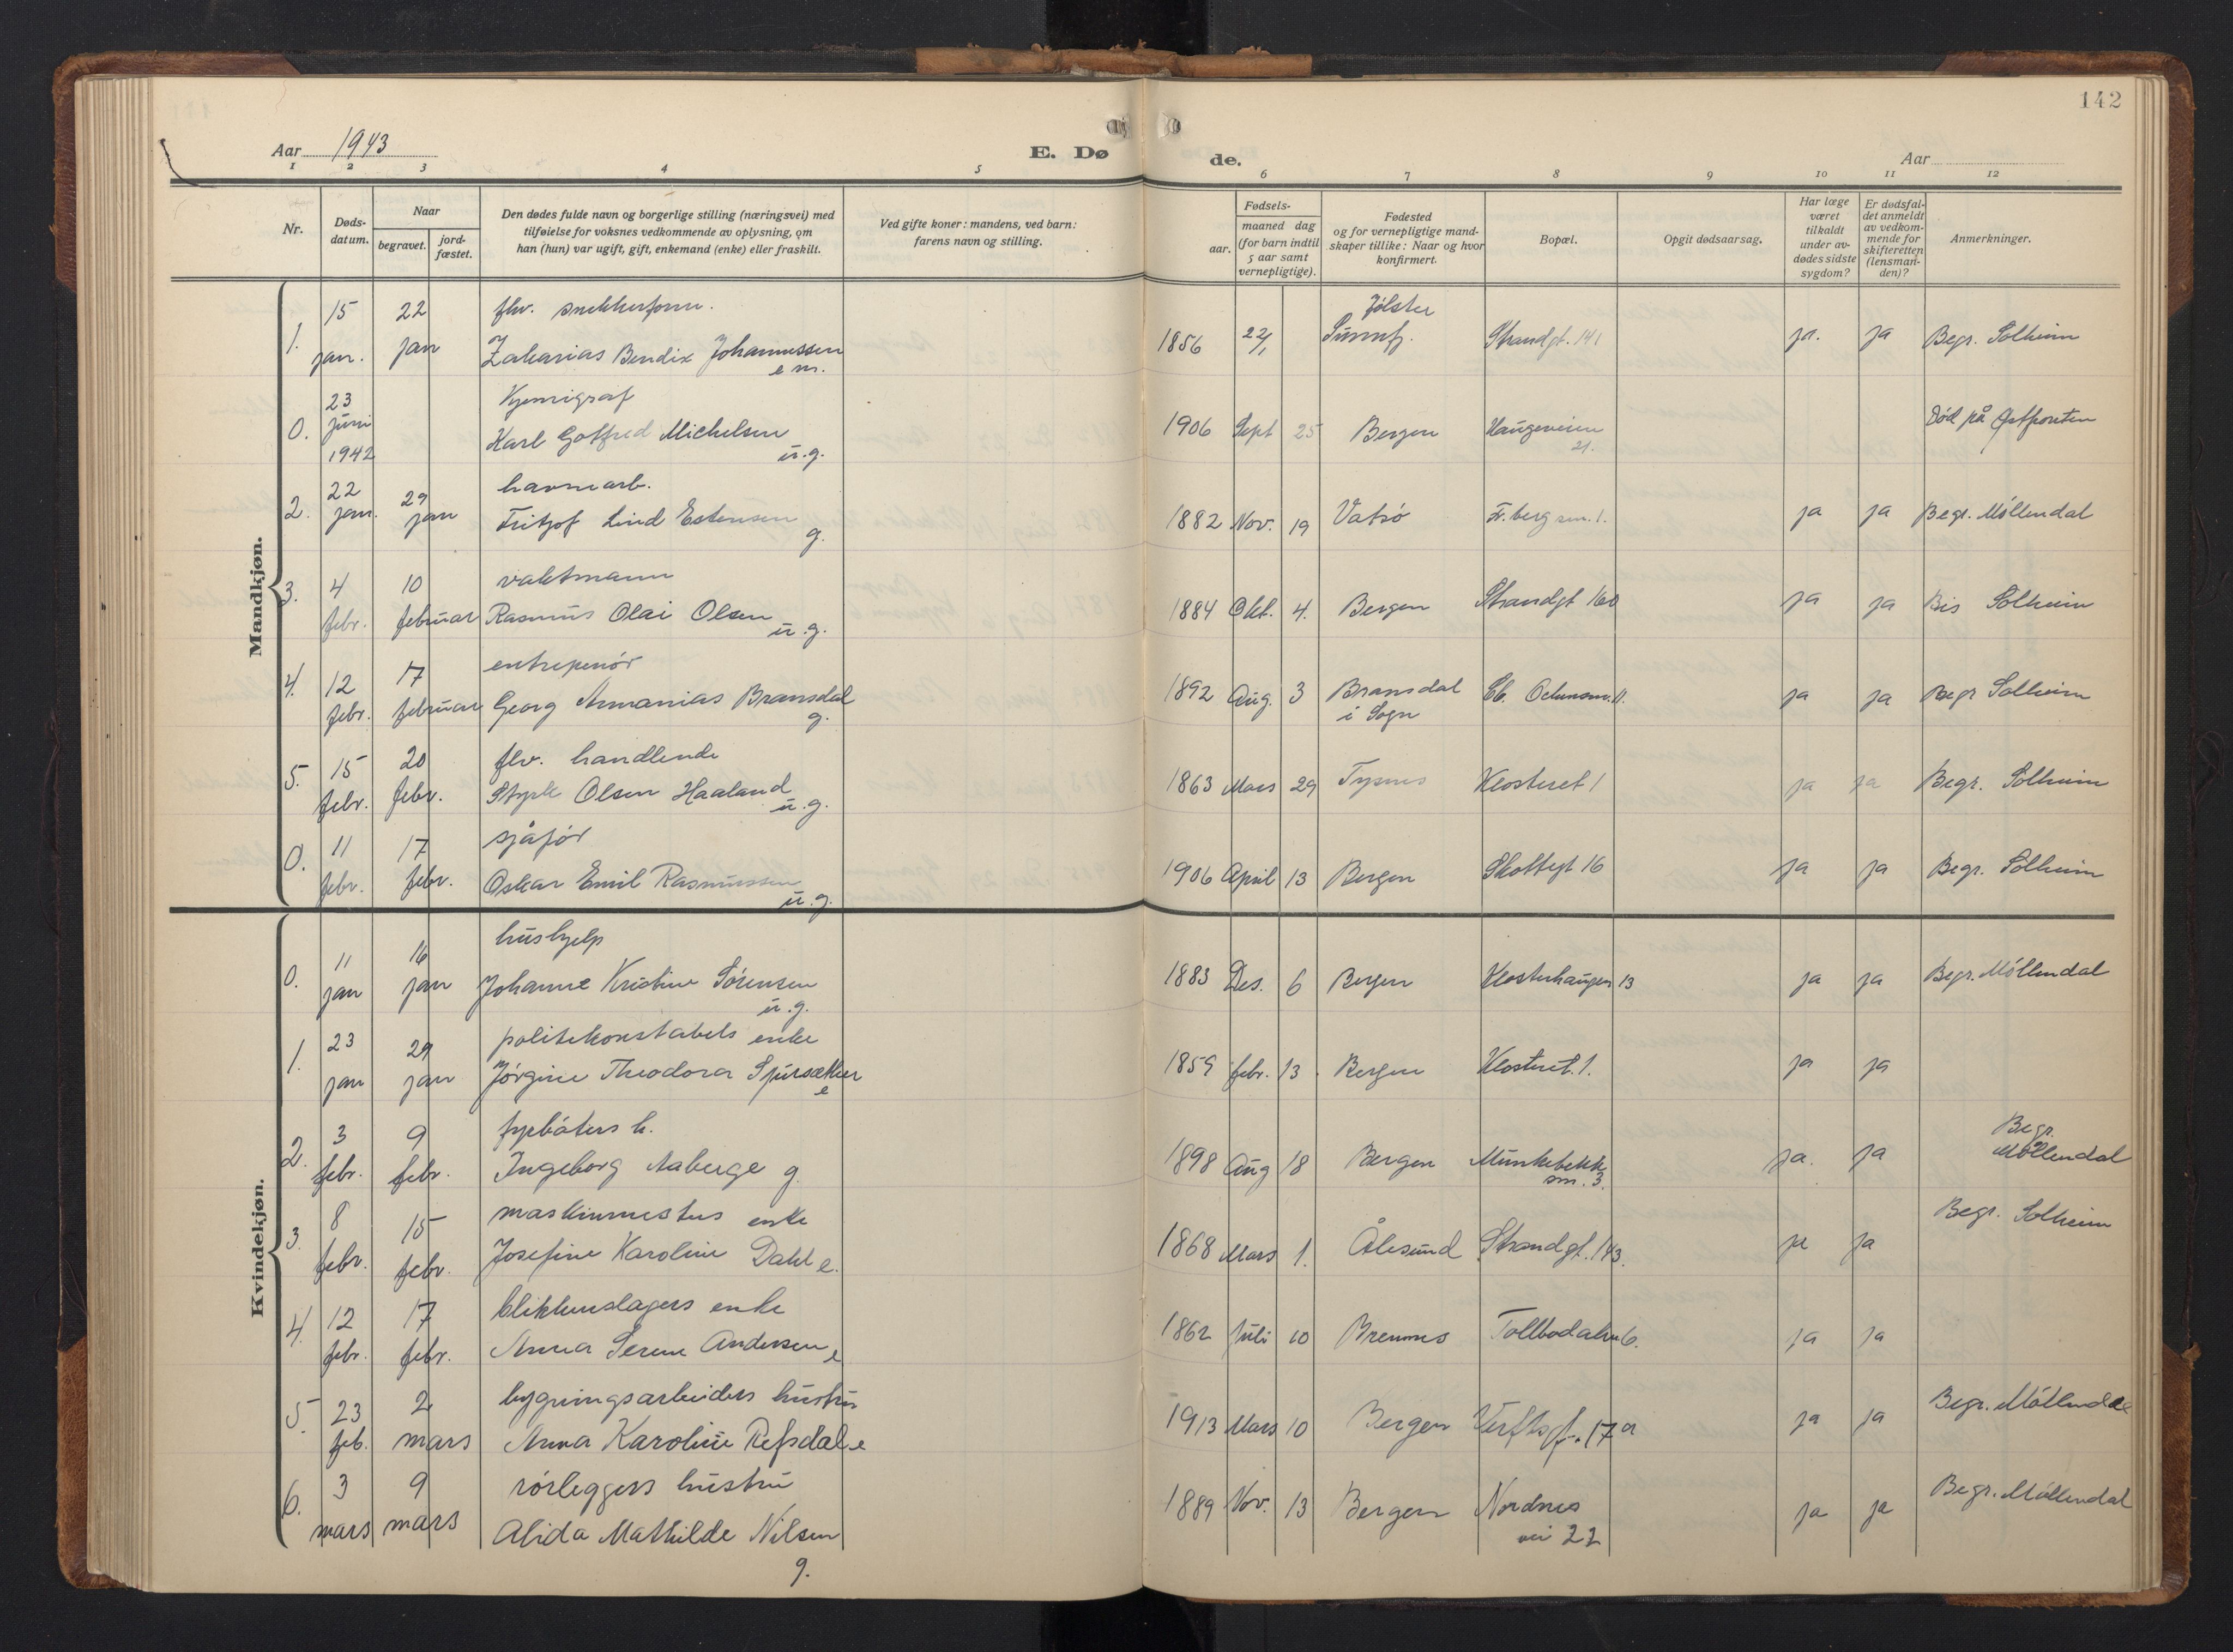 142
Aar 1943
E. Dø
de.
Aar
1 2 3 4 5 6 7 8 9 10 11 12
Nr.
Døds-
datum.
Naar
begravet.
jord-
fæstet.
Den dødes fulde navn og borgerlige stilling (næringsvei) med
tilføielse for voksnes vedkommende av oplysning, om
han (hun) var ugift, gift, enkemand (enke) eller fraskilt.
Ved gifte koner: mandens, ved barn:
farens navn og stilling.
Fødsels-
aar.
maaned dag
(for barn indtil
5 aar samt
vernepligtige).
Fødested
og for vernepligtige mand-
skaper tillike: Naar og hvor
konfirmert.
Bopæl.
Opgit dødsaarsag.
Har læge
været
tilkaldt
under av-
dødes sidste
sygdom?
Er dødsfal-
det anmeldt
av vedkom-
mende for
skifteretten
(lensman-
den)?
Anmerkninger.
Mandkjøn.
15 22 fhv. snekkerform. Jølster
1. jan. jan Zakarias Bendix Johannessen 1856 22/1 Sunnfj. Strandgt. 141 ja. ja Begr. Solheim
e m.
23 Kjemigraf
0. juni Karl Gotfred Michelsen 1906 Sept 25 Bergen Haugeveien Død på Østfronten
1942 u.g. 21.
22 29 havnearb.
2. jan. jan Fritjof Lind Estensen 1882 Nov. 19 Vatsø Fr. berg sm. 1. ja ja Begr. Möllendal
g.
3. 4 10 vaktmann
febr. februar Rasmus Olai Olsen 1884 Okt. 4. Bergen Strandgt 160 ja ja Bis Solheim
u.g.
4. 12 17 entrepenør
febr. februar Georg Annanias Bransdal 1892 Aug. 3 Bransdal ja ja Begr Solheim
g. i Sogn
5. 15 20 fhv. handlende
febr. febr. Styrk Olsen Haaland 1863 Mars 29 Tysnes Klosteret 1 ja ja Begr. Solheim
u.g.
0. 11 17 sjåfør
febr. febr. Oskar Emil Rasmussen 1906 April 13 Bergen Skottegt 16 ja ja Begr. Solheim
u.g.
Kvindekjøn.
0. 11 16 hushjelp
jan jan Johanne Kristine Sørensen 1883 Des. 6 Bergen Klosterhaugen 13 ja ja Begr. Möllendal
u.g.
1. 23 29 politikonstabels enke
jan jan Jørgine Theodora 1859 febr. 13. Bergen Klosteret. 1. ja ja
e
2. 3 9 fyrbøters h. Begr.
febr. febr. Ingeborg Aaberge g. 1898 Aug 18 Bergen Munkebekk ja. ja Möllendal
sm. 3.
3. 8 15 maskinmesters enke
febr. febr. Josefine Karoline Dahl e. 1868 Mars 1. Ålesund Strandgt. 143. ja ja Begr. Solheim
4. 12 17 blikkenslagers enke
febr. febr. Anna Serene Andersen e 1862 Juli 10 Bremnes Tollbodalm 6. ja ja
5. 23 2 bygningsarbeiders hustru
feb. mars Anna Karoline Refsdal e 1913 Mars 10 Bergen Verftsgt. 17 a ja ja Begr. Möllendal
6. 3 9 rørleggers hustru
mars mars Alida Mathilde Nilsen 1889 Nov. 13 Bergen Nordnes ja ja Begr. Möllendal
g. vei 22